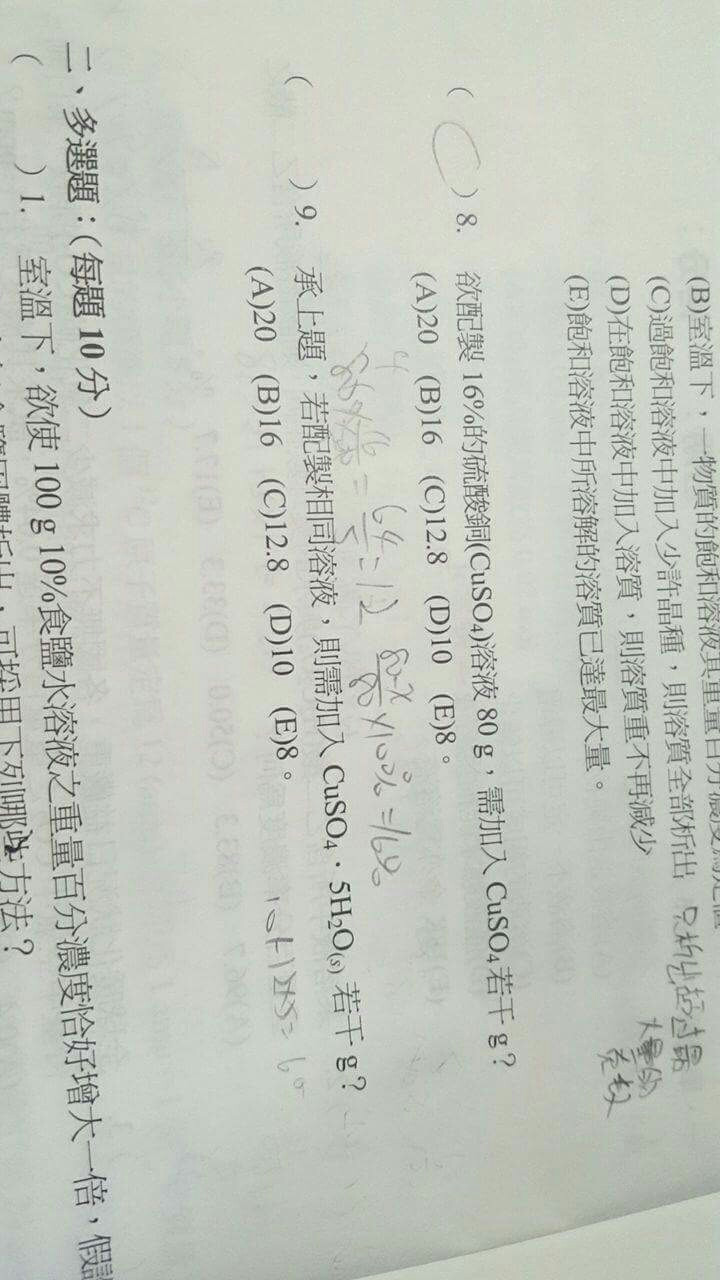 (B)室溫下，一物質的飽和溶液其重量百分濃度為定值
(C)過飽和溶液中加入少許晶種，則溶質全部析出
(D)在飽和溶液中加入溶質，則溶質重不再減少
(E)飽和溶液中所溶解的溶質已達最大量。
( C ) 8. 欲配製 16%的硫酸銅(CuSO₄)溶液 80 g，需加入 CuSO₄ 若干 g？
(A)20 (B)16 (C)12.8 (D)10 (E)8。
80-x/80 x100% =16%
( ) 9. 承上題，若配製相同溶液，則需加入 CuSO₄．5H₂O(s) 若干 g？
(A)20 (B)16 (C)12.8 (D)10 (E)8。
二、多選題：(每題 10 分)
( ) 1. 室溫下，欲使 100 g 10%食鹽水溶液之重量百分濃度恰好增大一倍，假設
可採用下列哪些方法？